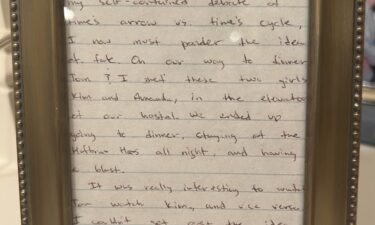 my self-contained debate of
time's arrow vs. time's cycle,
I now must ponder the idea
of fate. On our way to dinner
Tom & I met these two girls
Kim and Amanda, in the elevator
of our hostal. We ended up
going to dinner, staying at the
Haus all night, and having
a blast.
It was really interesting to watch
Tom watch Kim, and vice versa
I couldn't get over the idea